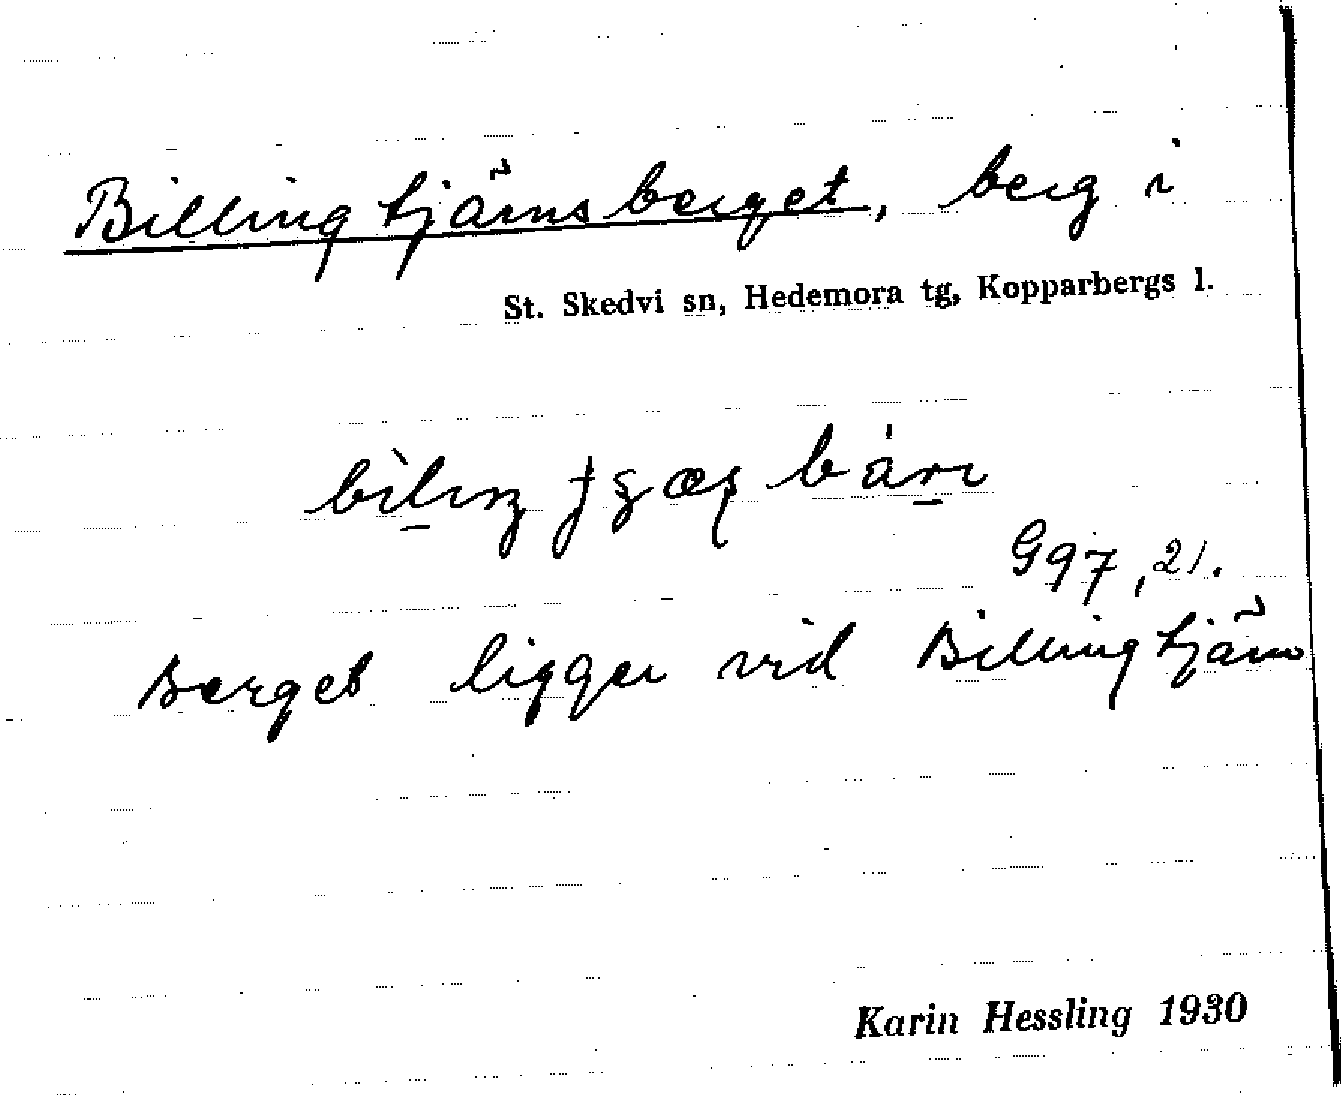 Billingtjärnsberget, berg i
St. Skedvi sn, Hedemora tg, Kopparbergs l.
G97, 21.
Berget ligger vid Billingtjärn
Karin Hessling 1930